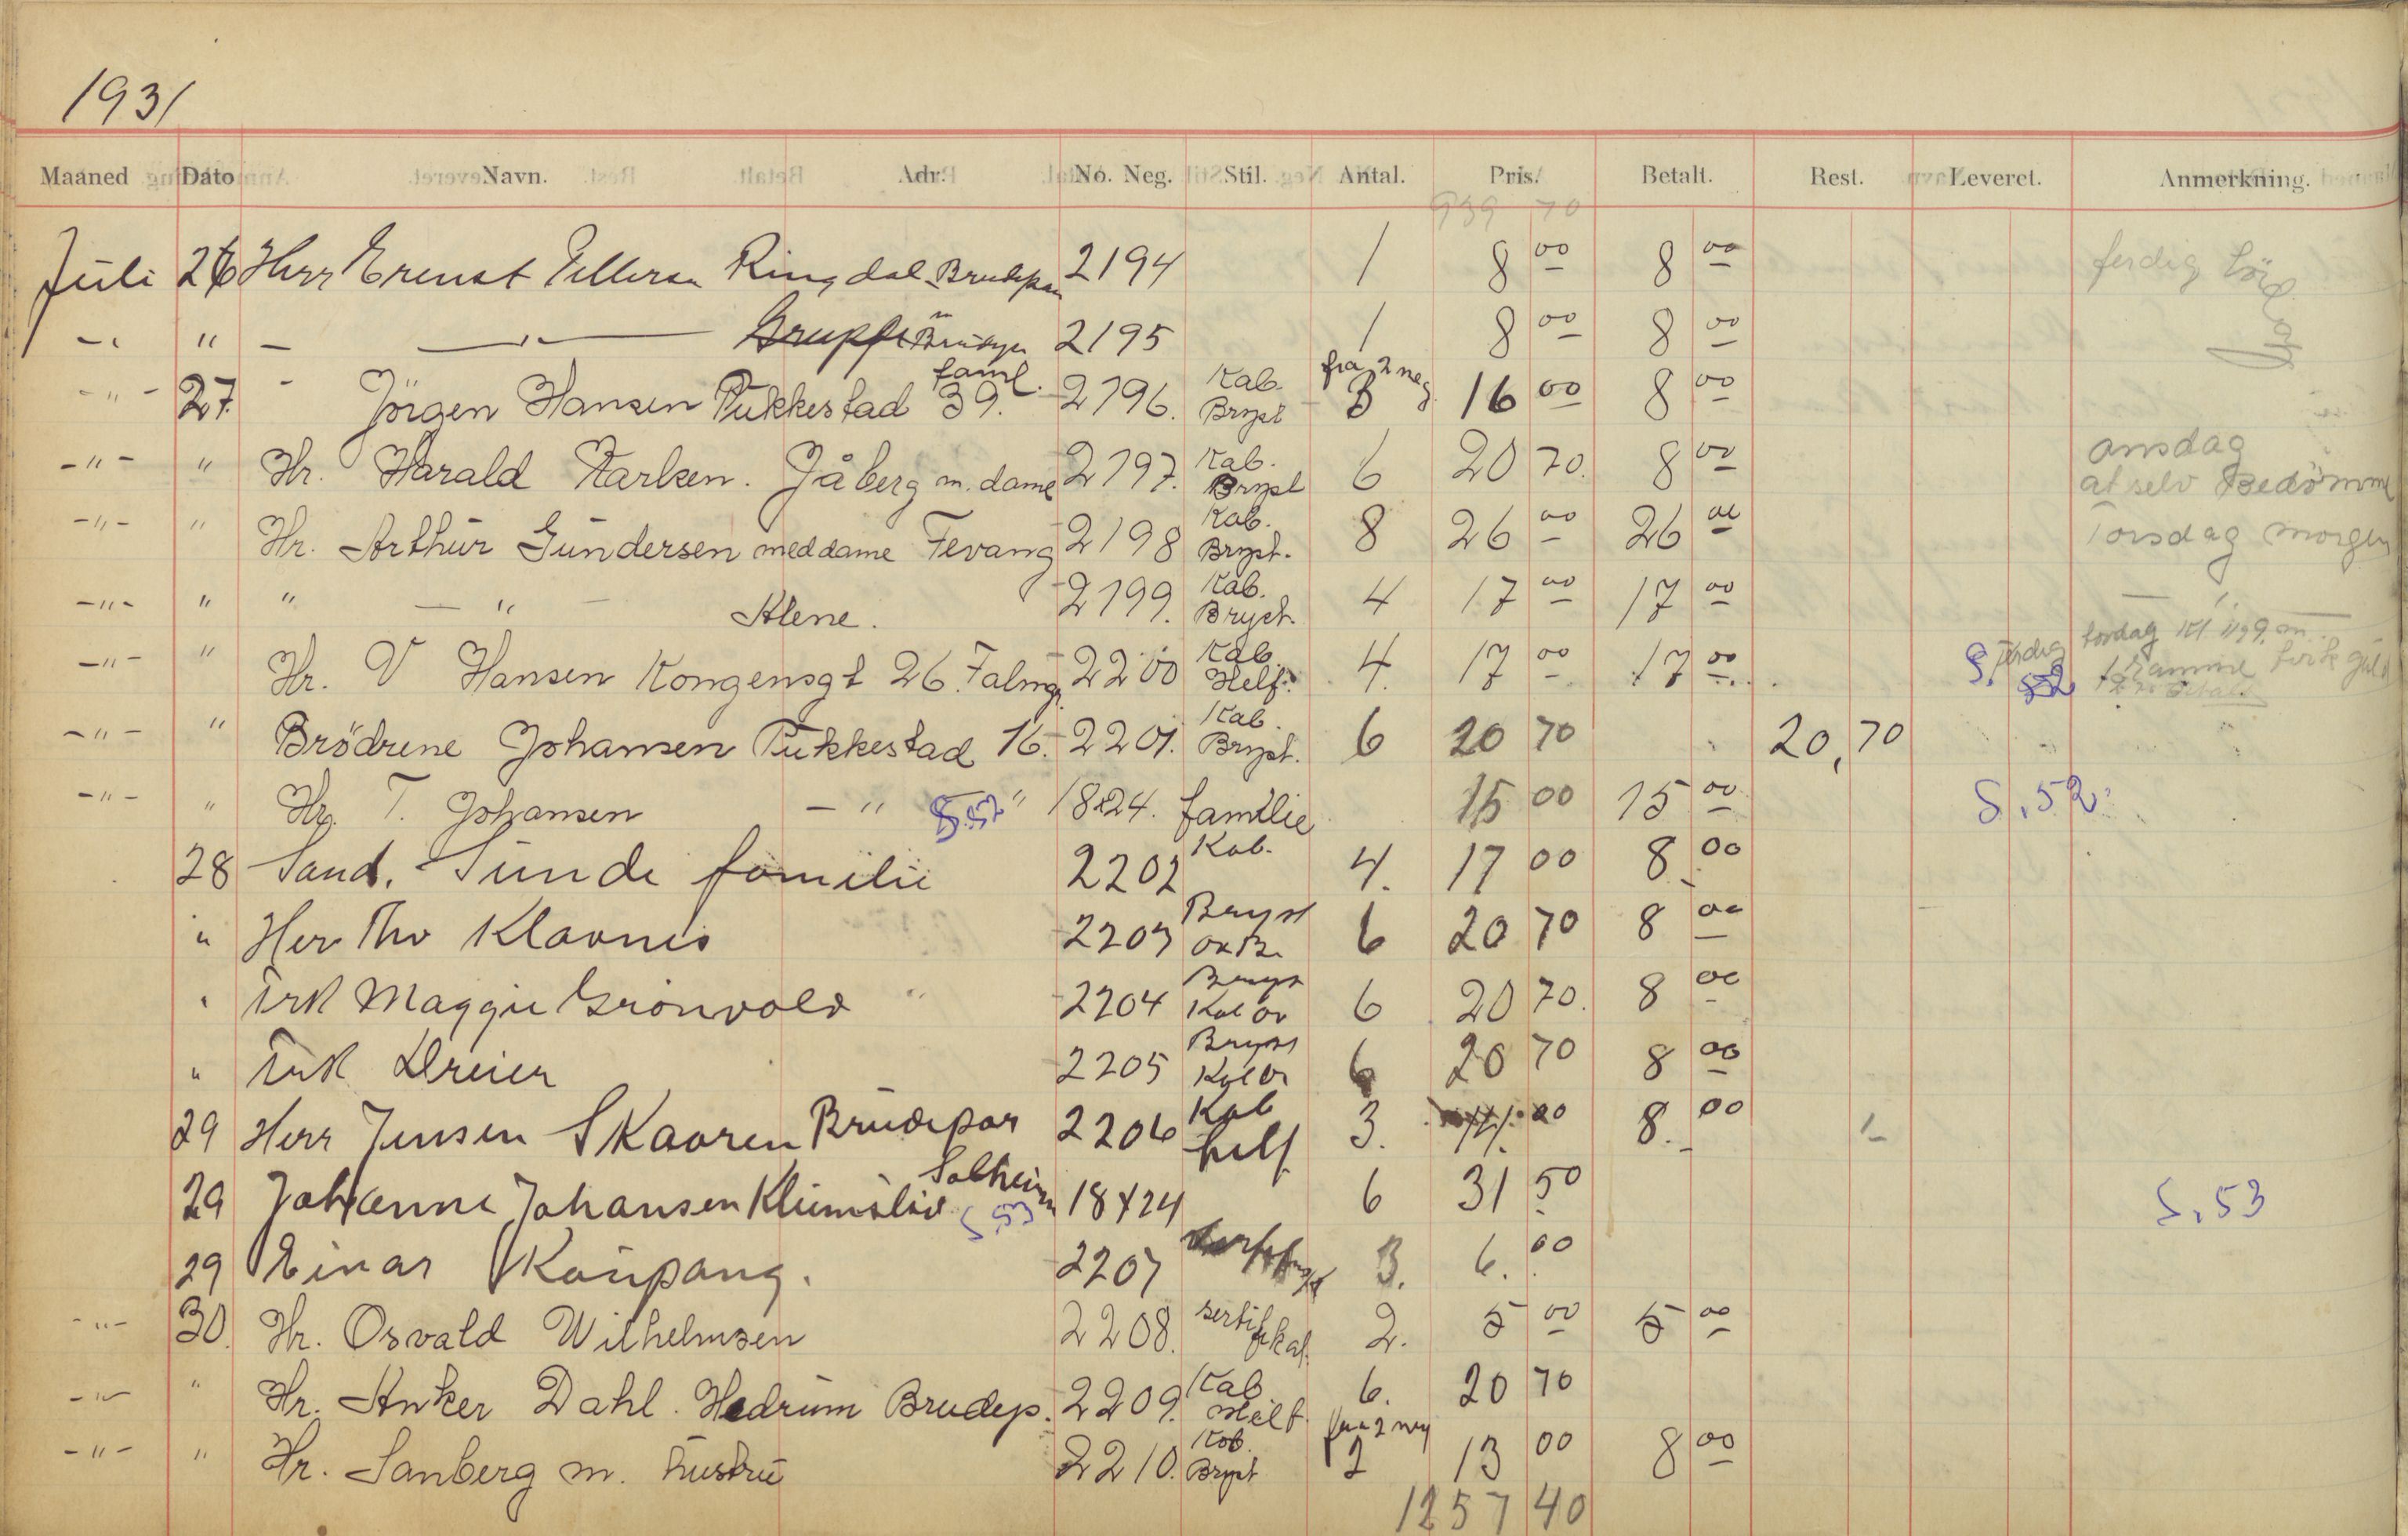 1931
Maaned Dato Navn. Adr. No. Neg. Stil. Antal. Pris. Betalt. Rest. Leveret. Anmerkning.
939 70
Juli 26 Herr Erenst Pellersen Ringdal Brudepar 2194 1 8 00 8 00 ferdig
-" " - — " — Brudepar 2195 1 8 00 8 00
-"- 27. - Jörgen Hansen Pukkestad 39. faml. 2196. Kab. Bryst fra 2 neg 3 16 00 8 00
-"- " Hr. Harald Karlsen. Jåberg m. dame 2197. Kab. Bryst 6 20 70. 8 00 onsdag at selv Bedömme
-"- " Hr. Arthur Gundersen med dame Fevang 2198 Kab. Bryst. 8 26 00 26 00 Torsdag morgen
-"- " " — " — Alene. 2199. Kab. Bryst. 4 17 00 17 00
-"- " Hr. V Hansen Kongensgt 26. 2200 Kab. Helf. 4. 17 00 17 00 S. 52 ferdig
-"- " Brödrene Johansen Pukkestad 16. 2201. Kab. Bryst. 6 20 70 20,70
-"- " Hr. T. Johansen — " S.52 " 18x24. familie 15 00 15 00 S.52
28 Sand. Sunde familie 2202 Kab. 4. 17 00 8 00
" Herr Thv Klavnes 2203 Bryst 6 20 70 8 00
" Frk Maggie Grönvold 2204 Bryst Kab 6 20 70. 8 00
" Frk Dreier 2205 Bryst Kab 6 20 70 8 00
29 Herr Jensen Skaaren Brudepar 2206 Kab helf 3. 00 8. 00
29 Johanne Johansen Solheim S.53 18x24 6 31 50 S.53
29 Einar Kaupang. 2207 3. 6. 00
-"- 30. Hr. Osvald Wilhelmsen 2208. sertifikat. 2. 5 00 5 00
-"- " Hr. Anker Dahl. Hedrum Brudep. 2209. Kab. Helf. 6. 20 70
-"- " Hr. Sanberg m. hustru 2210. Kab. Bryst fra 2 neg 2 13 00 8 00
1257 40